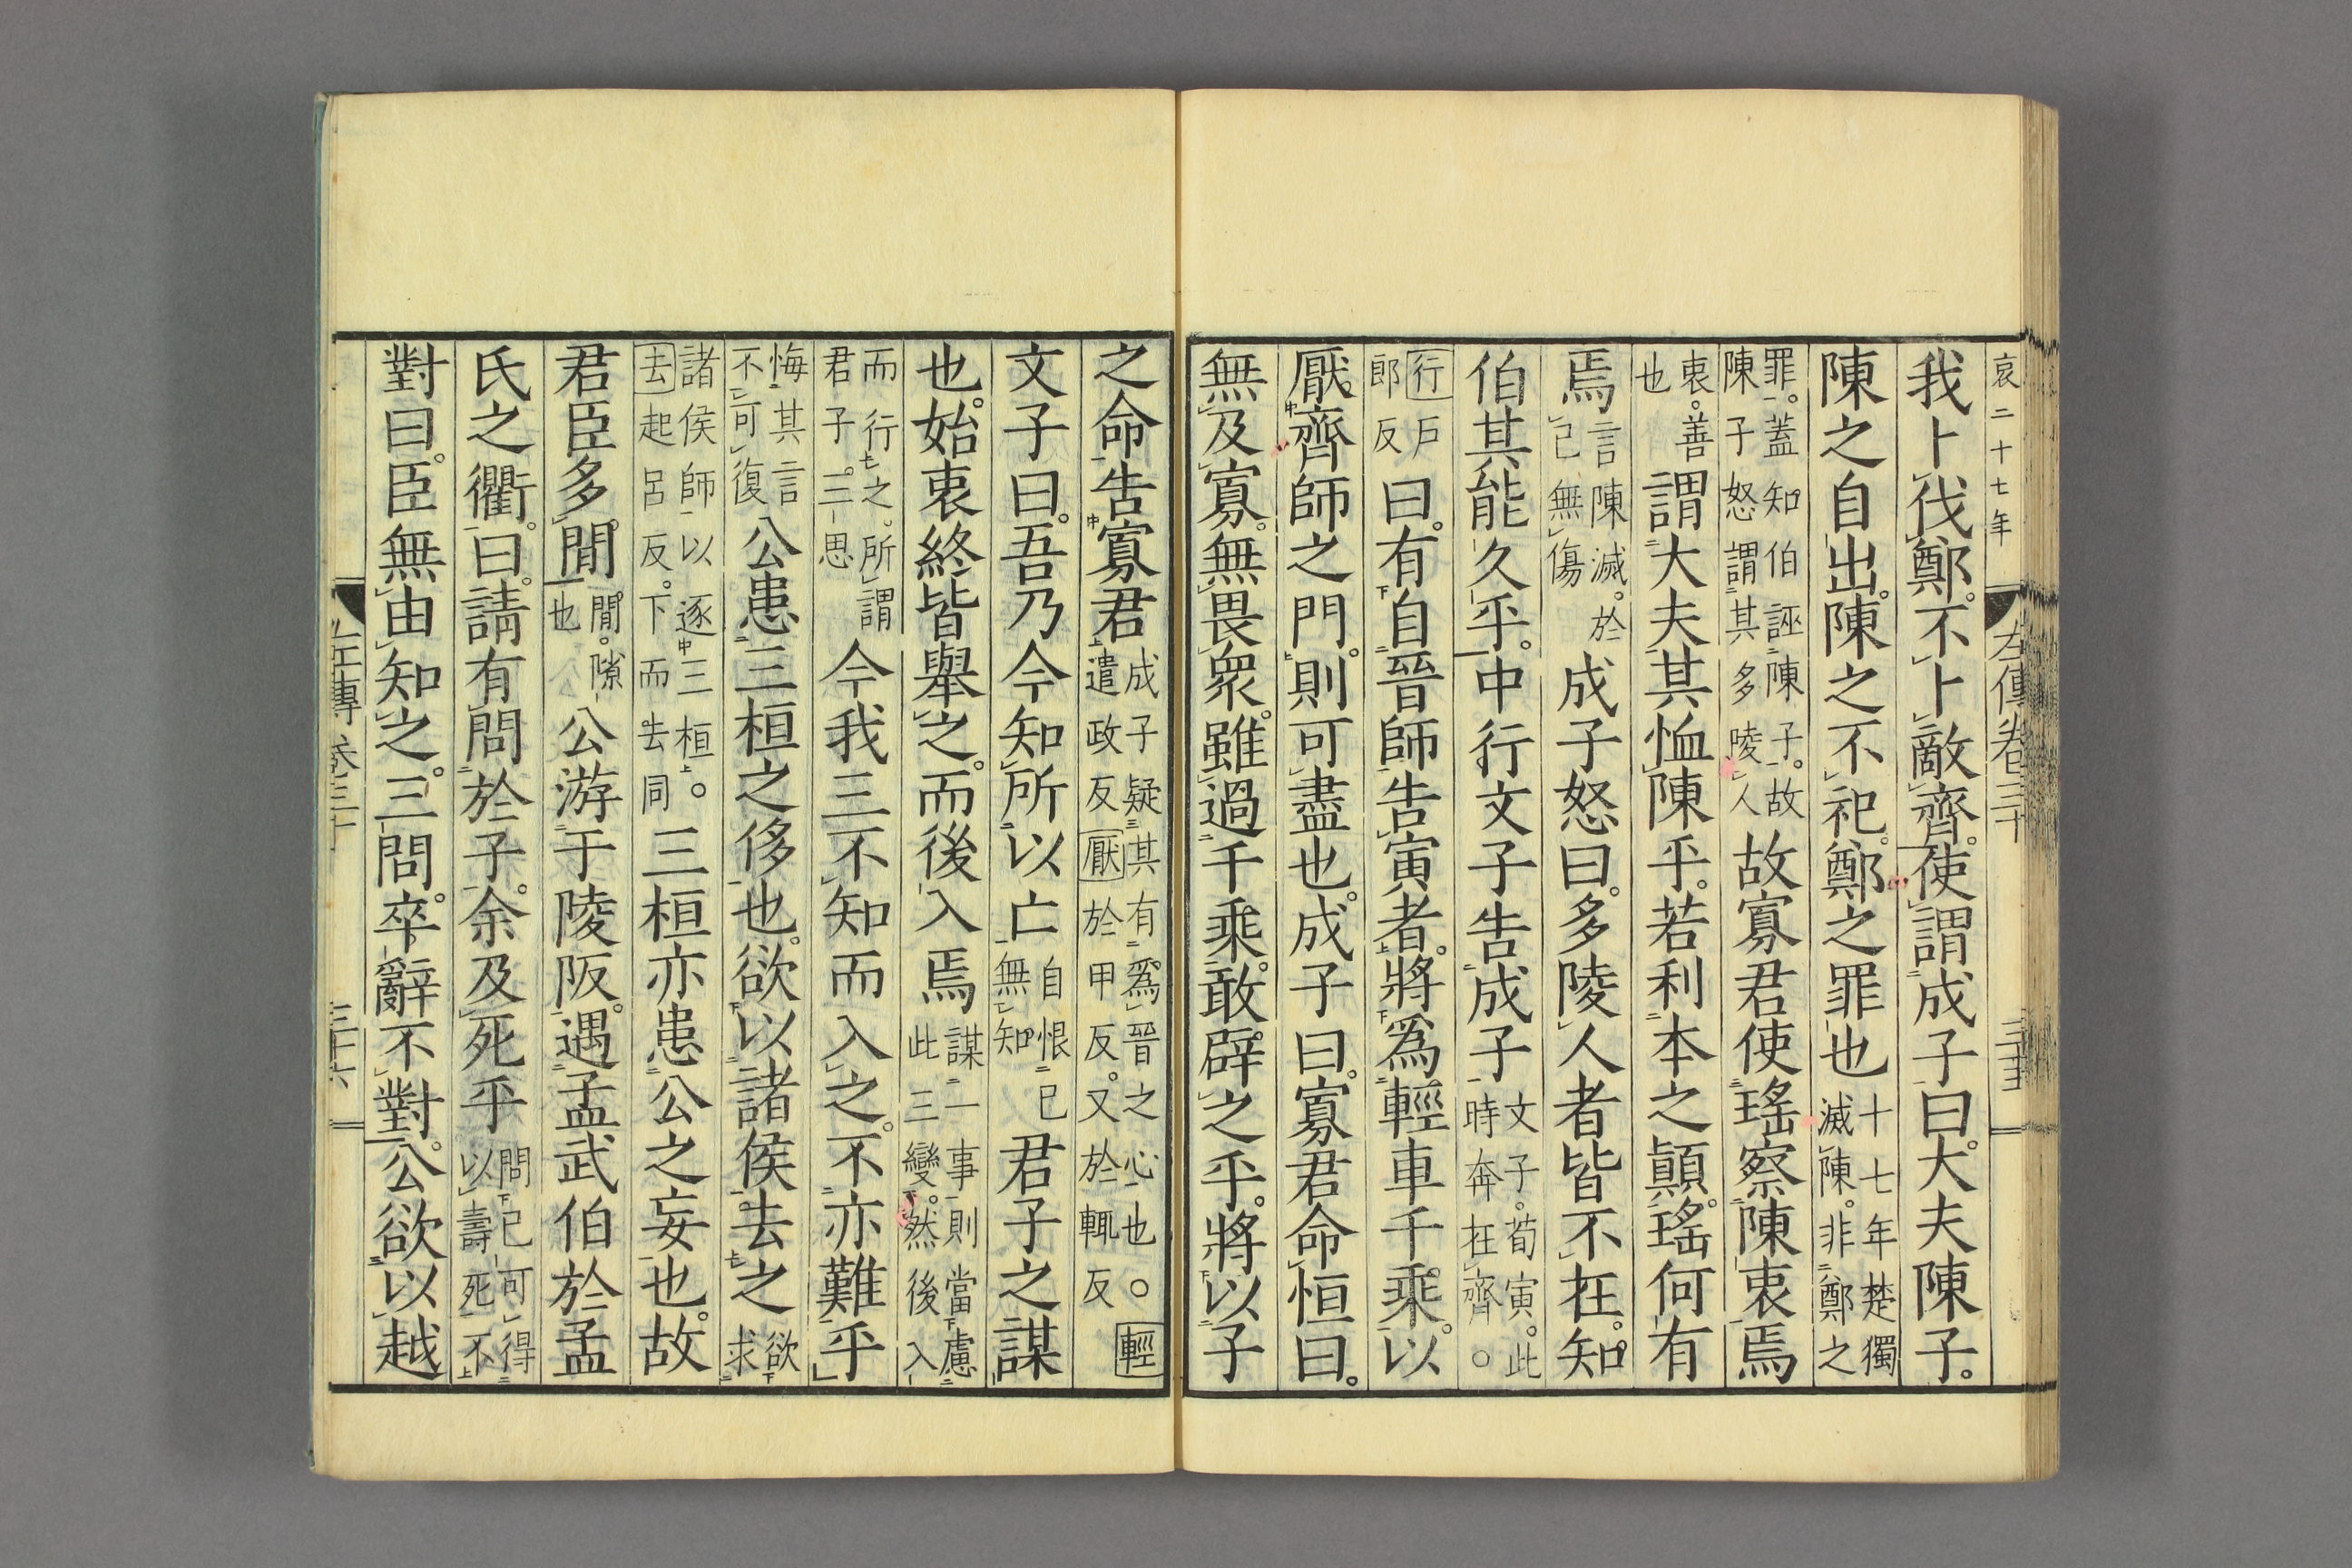 哀二十七年　左傳卷三十　三十五
我卜伐鄭。不卜敵齊。使謂成子曰。大夫陳子。
陳之自出。陳之不祀。鄭之罪也十七年楚獨滅陳。非鄭之
罪。蓋知伯誣陳子。故陳子怒謂其多陵人故寡君使瑤察陳衷焉
衷。善也謂大夫其恤陳乎。若利本之顛。瑤何有
焉言陳滅。於己無傷成子怒曰。多陵人者皆不在。知
伯其能久乎。中行文子告成子文子。荀寅。此時奔在齊。○
行戶郎反曰。有自晉師告寅者。將爲輕車千乘。以
厭齊師之門。則可盡也。成子曰。寡君命恒曰。
無及寡。無畏衆。雖過千乘。敢辟之乎。將以子
之命告寡君成子疑其有爲晉之心也○輕遣政反厭於甲反。又於輒反
文子曰。吾乃今知所以亡自恨己無知君子之謀
也。始衷終皆舉之。而後入焉謀一事則當慮此三變。然後入
而行之。所謂君子三思今我三不知而入之。不亦難乎
悔其言不可復公患三桓之侈也。欲以諸侯去之欲求
諸侯師以逐三桓。○去起呂反。下而去同三桓亦患公之妄也。故
君臣多閒閒。隙也公游于陵阪。遇孟武伯於孟
氏之衢。曰。請有問於子。余及死乎問己可得以壽死不
對曰。臣無由知之。三問。卒辭不對。公欲以越
左傳卷三十　三十六